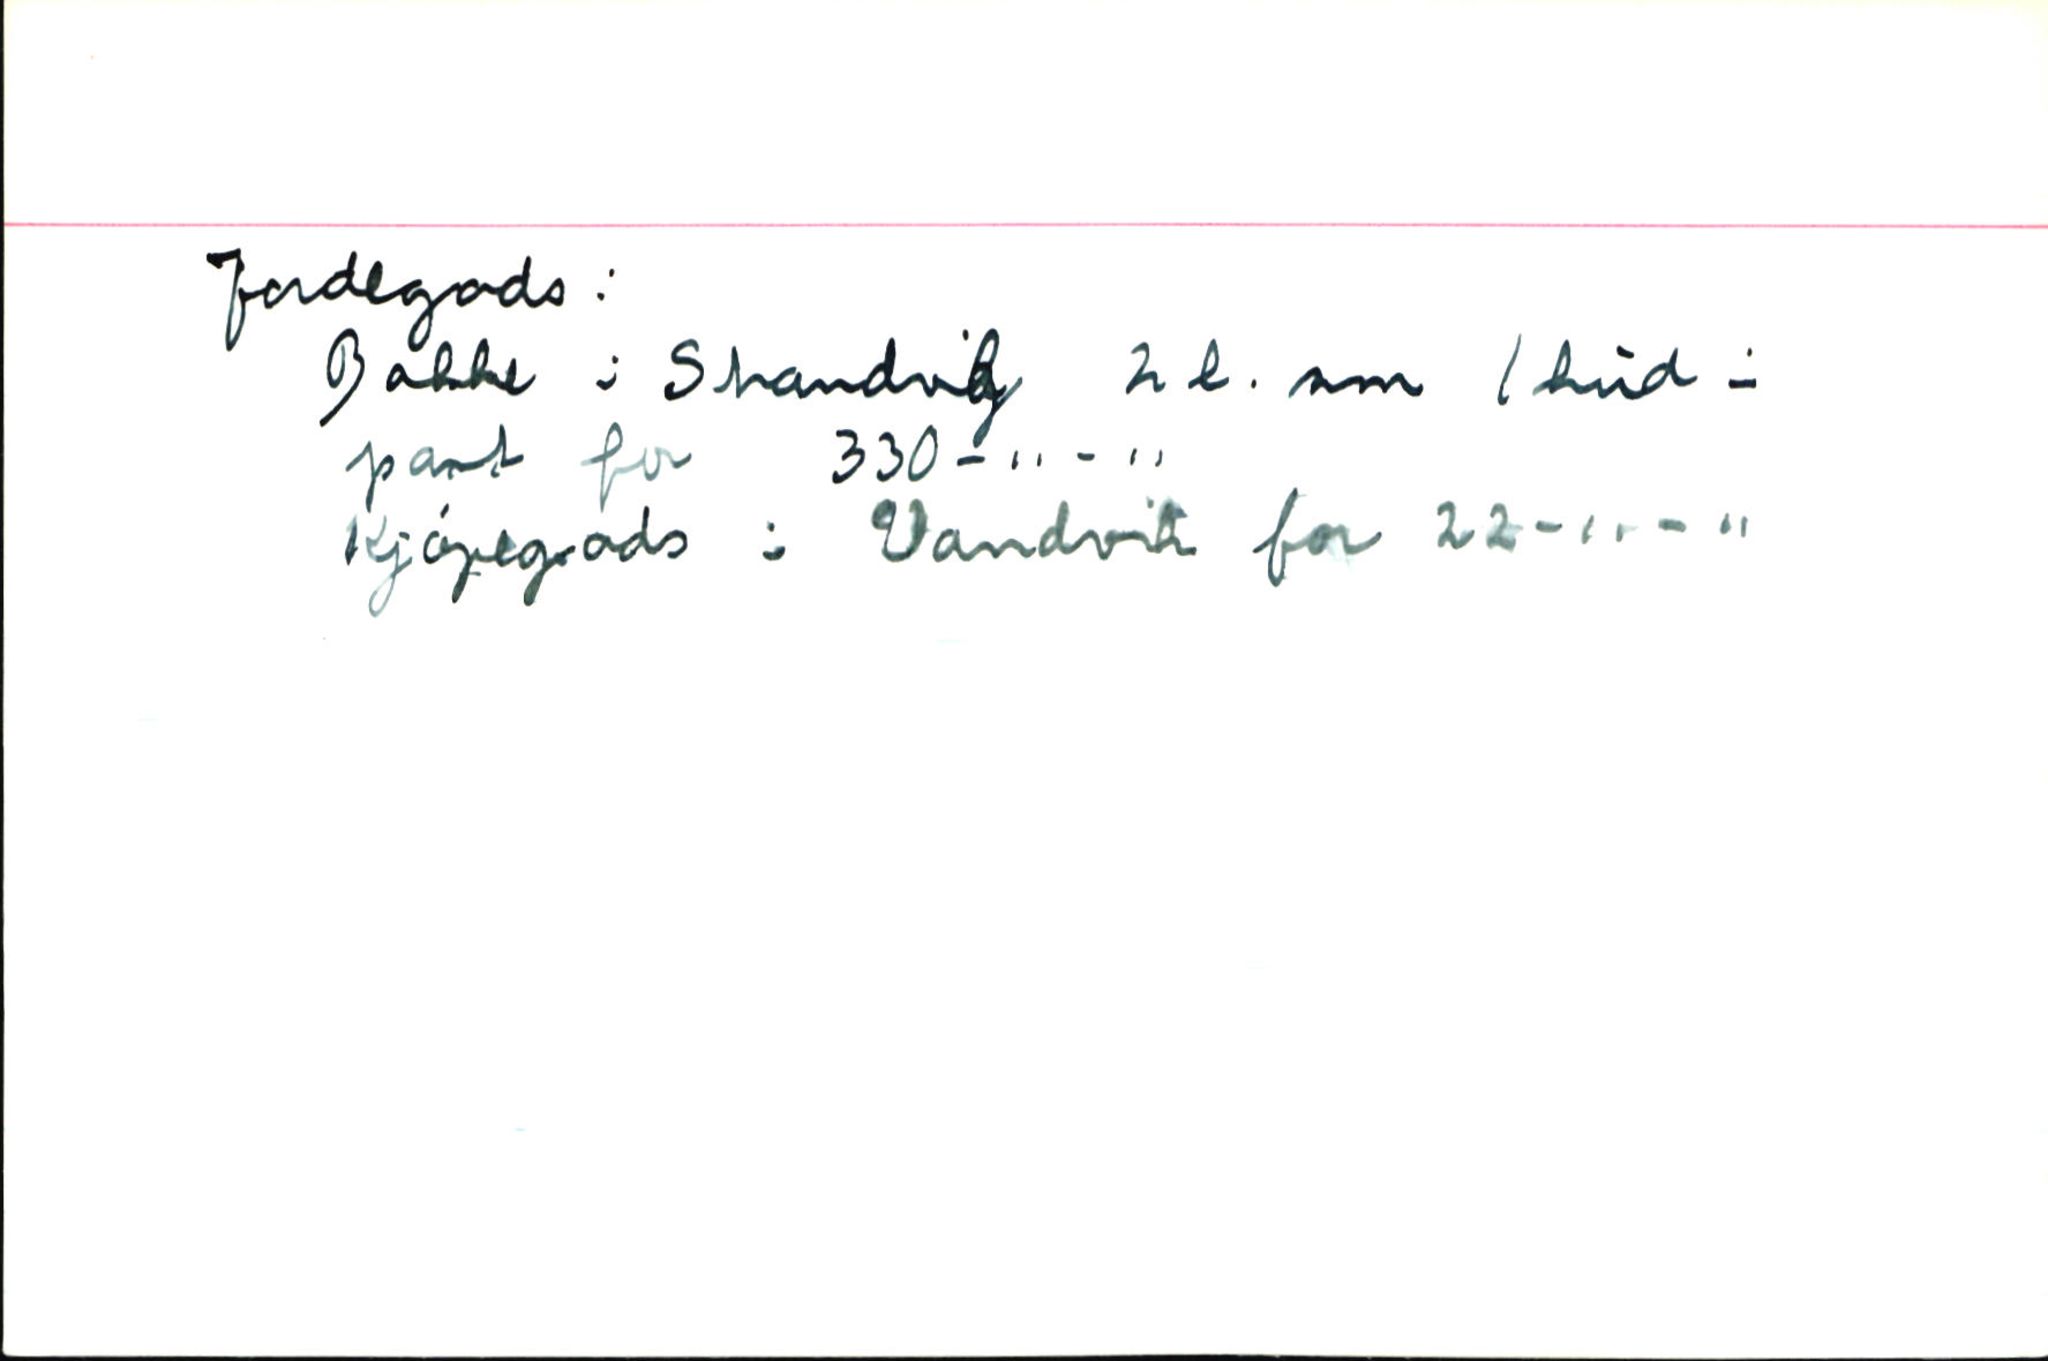 Jordegods:
Bakke i Strandvig 2 l. sm 1 hud i
pant for 330-"-"
Kjøpegods i Vandvik for 22-"-"